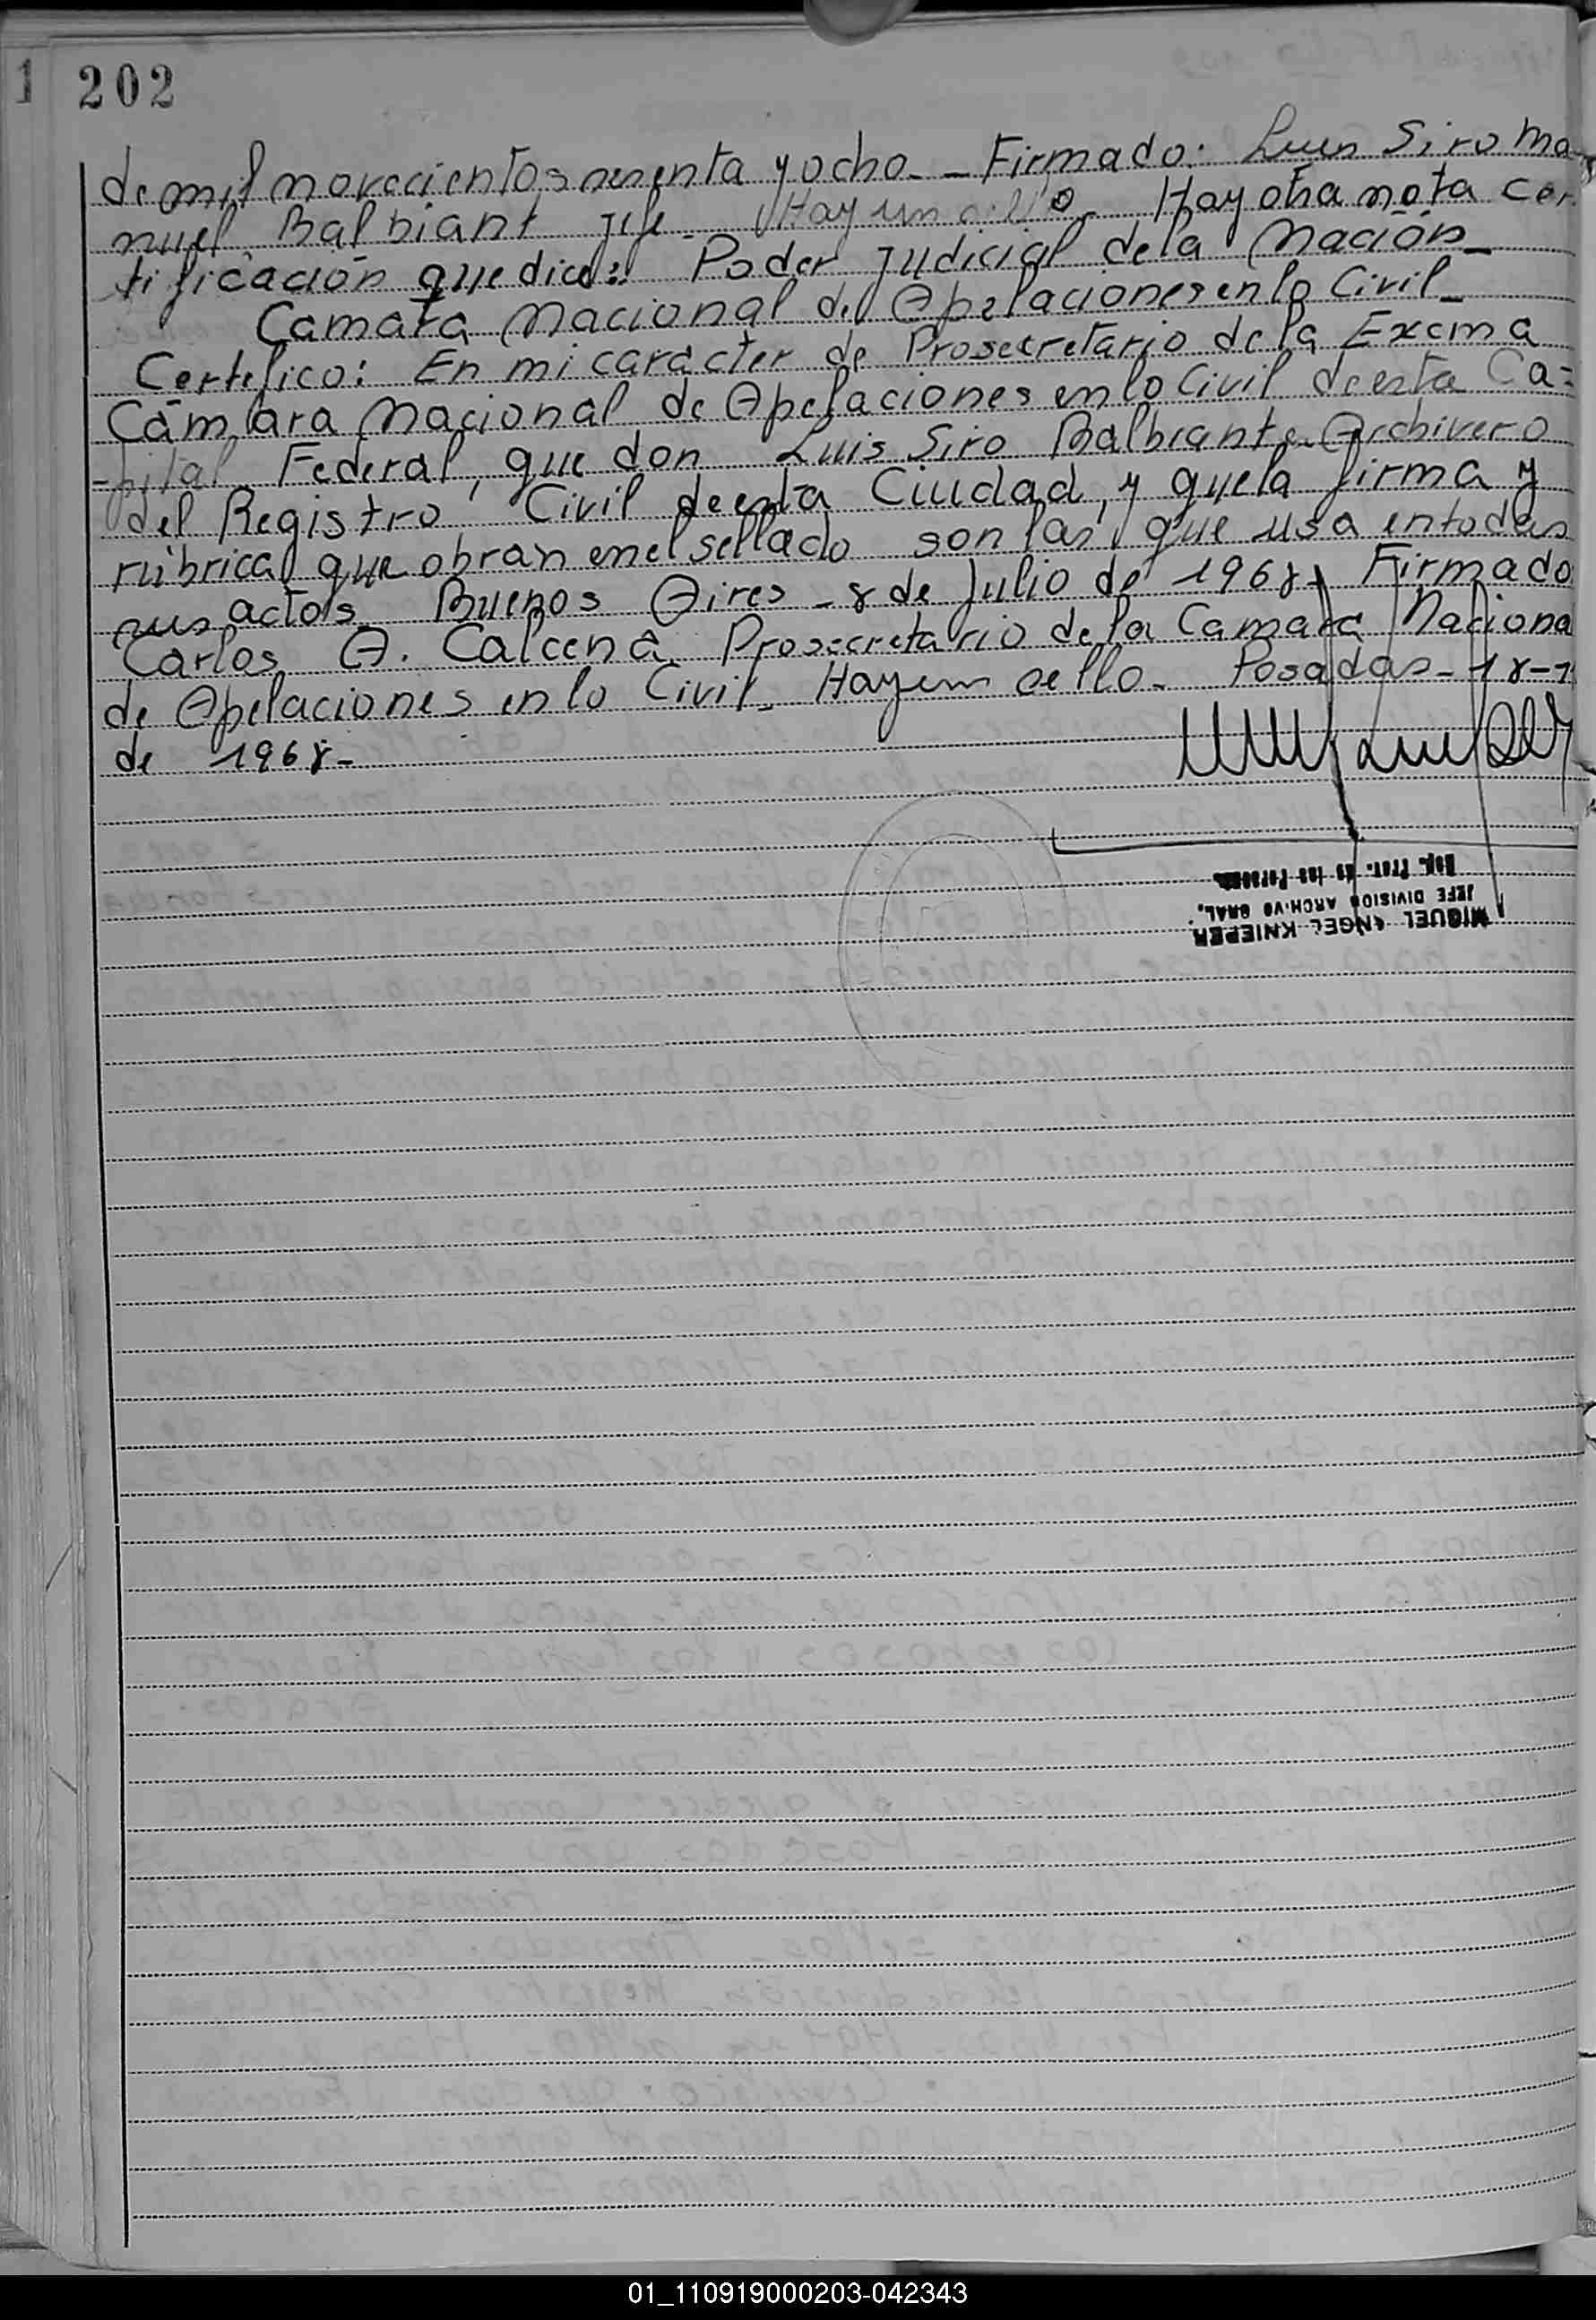 1 202
de mil novecientos sesenta y ocho._ _ Firmado: Luis Siro Ma-
nuel Balbiant Jefe_ Hay un sello_ Hay otra nota cer-
tificación que dice: Poder Judicial de la Nación_
Camara Nacional de Apelaciones en lo Civil_
Certifico: En mi carácter de Prosecretario de la Excma
Cámara Nacional de Apelaciones en lo Civil de esta Ca=
-pital Federal, que don Luis Siro Balbiant es Archivero
del Registro Civil de esta Ciudad, y que la firma y
rúbrica que obran en el sellado son las que usa en todos
sus actos_ Buenos Aires _ 8 de Julio de 1968_ Firmado
Carlos A. Calcena Prosecretario de la Camara Naciona
de Apelaciones en lo Civil_ Hay un sello_ Posadas_ 18-7
de 1968_
MIGUEL ANGEL KNIEPER
JEFE DIVISION ARCH.VO GRAL.
Dep. Prov. de las Personas
01_110919000203-042343